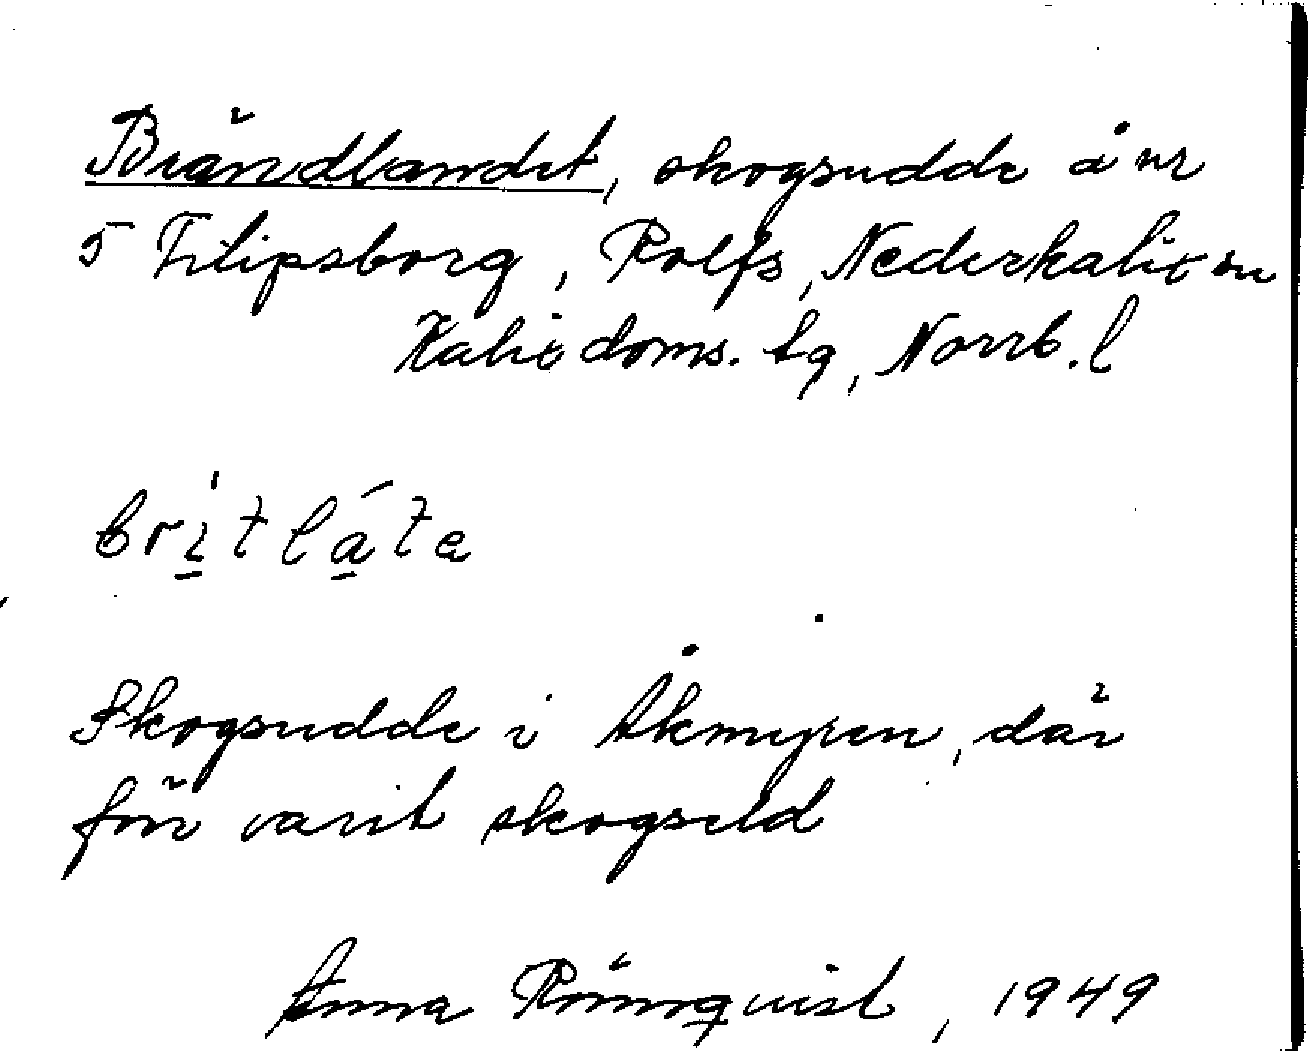 Brändlandet, skogsudde å nr
5 Filipsborg, Rolfs, Nederkalix sn
Kalix doms. tg, Norrb. l
Skogsudde i Åkmyren, där
förr varit skogseld
Anna Rönnqvist, 1949